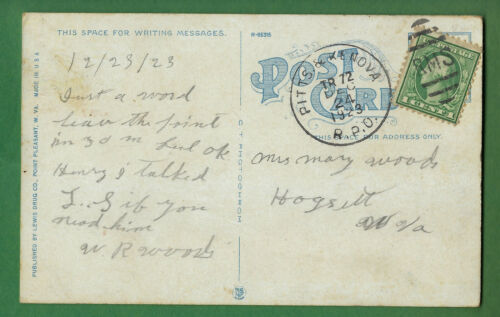 THIS SPACE FOR WRITING MESSAGES.
R-86315
POST CARD
THIS SPACE FOR ADDRESS ONLY.
MADE IN U.S.A
PUBLISHED BY LEWIS DRUG CO., POINT PLEASANT, W. VA.
12/23/23
Just a word
leave the point
in 30 m Feel OK
Henry I talked
if you
need him
W R Woods
PITTS & KENOVA
TR 72
DEC
24
1923
R.P.O.
RMS
POSTAGE
1 CENT 1
Mrs Mary Woods
Hogsett
W Va